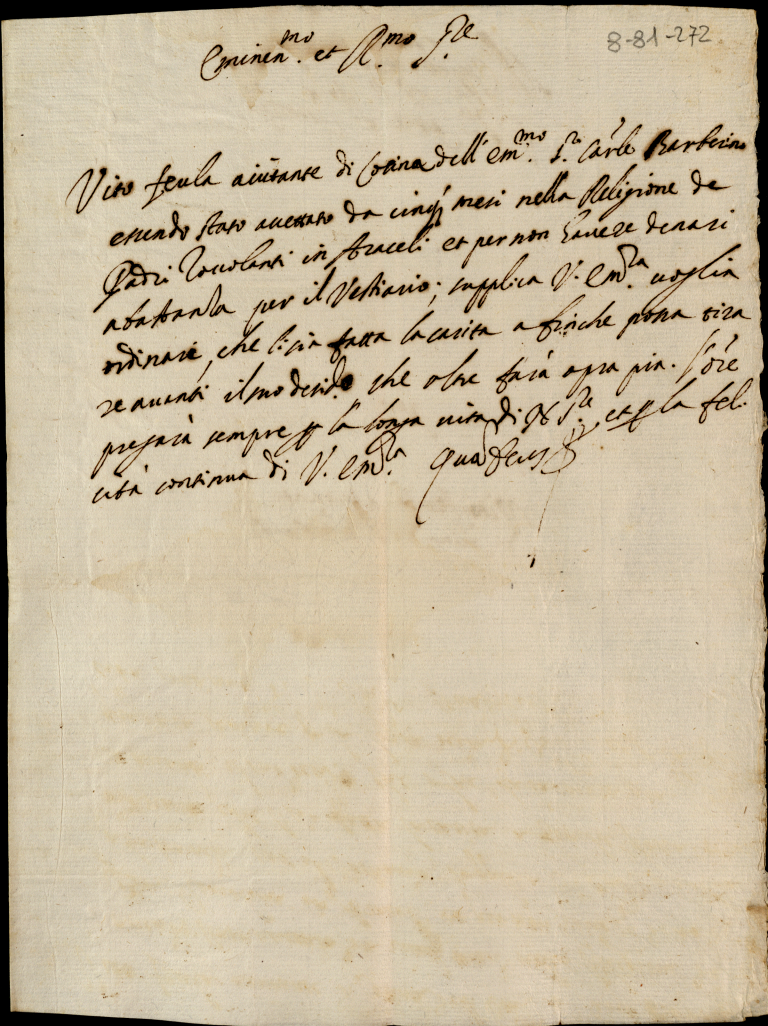 8-81-272
Eminen.mo et R.mo S.re
Vito feula aiutante di Cocina dell' em.mo S.r Carle Barberino
essendo stato accettato da cinq mesi nella Religione de
Padri Zoccolanti in Araceli et per non havere denari
abastanza per il Vestiario; supplica V. Em.za voglia
ordinare, che li sia fatta la carita a finche possa tira
re avanti il suo desid.o che oltre farà opra pia. l'ore
pregarà sempre p la longa vita di N S.re et p la feli
cità continua di V. Em.za Quam Deus